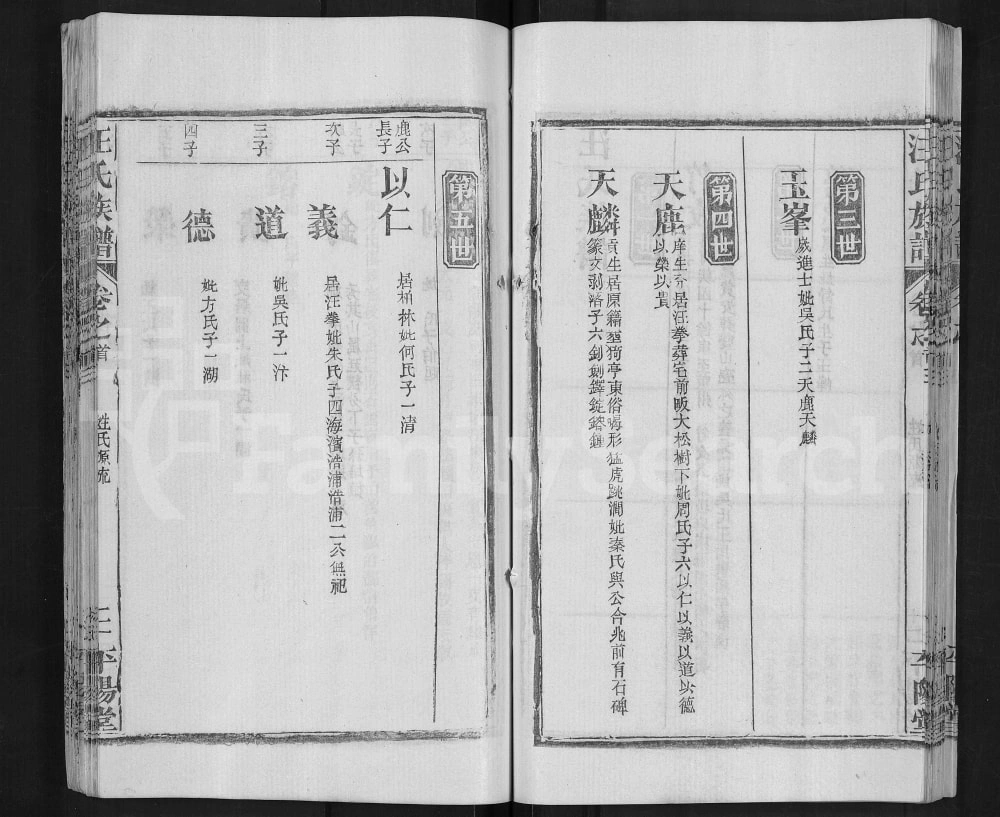 第三世
玉峯
歲進士妣吳氏子二天鹿天麟
第四世
天鹿
庠生分居汪拳葬宅前畈大松樹下妣周氏子六以仁以義以道以德
以榮以貴
天麟
貢生居原籍 亭東俗喝形猛虎跳澗妣秦氏與公合兆前有石碑
篆文剥落子六釗劍鐸錠鎔鍾
第五世
鹿公
長子
以仁
居柏林妣何氏子一清
次子
義
居汪拳妣朱氏子四海濱浩浦浩浦二公無祀
三子
道
妣吳氏子一汴
四子
德
妣方氏子一湖
汪氏族譜
卷之首
姓氏源流
三
平陽堂